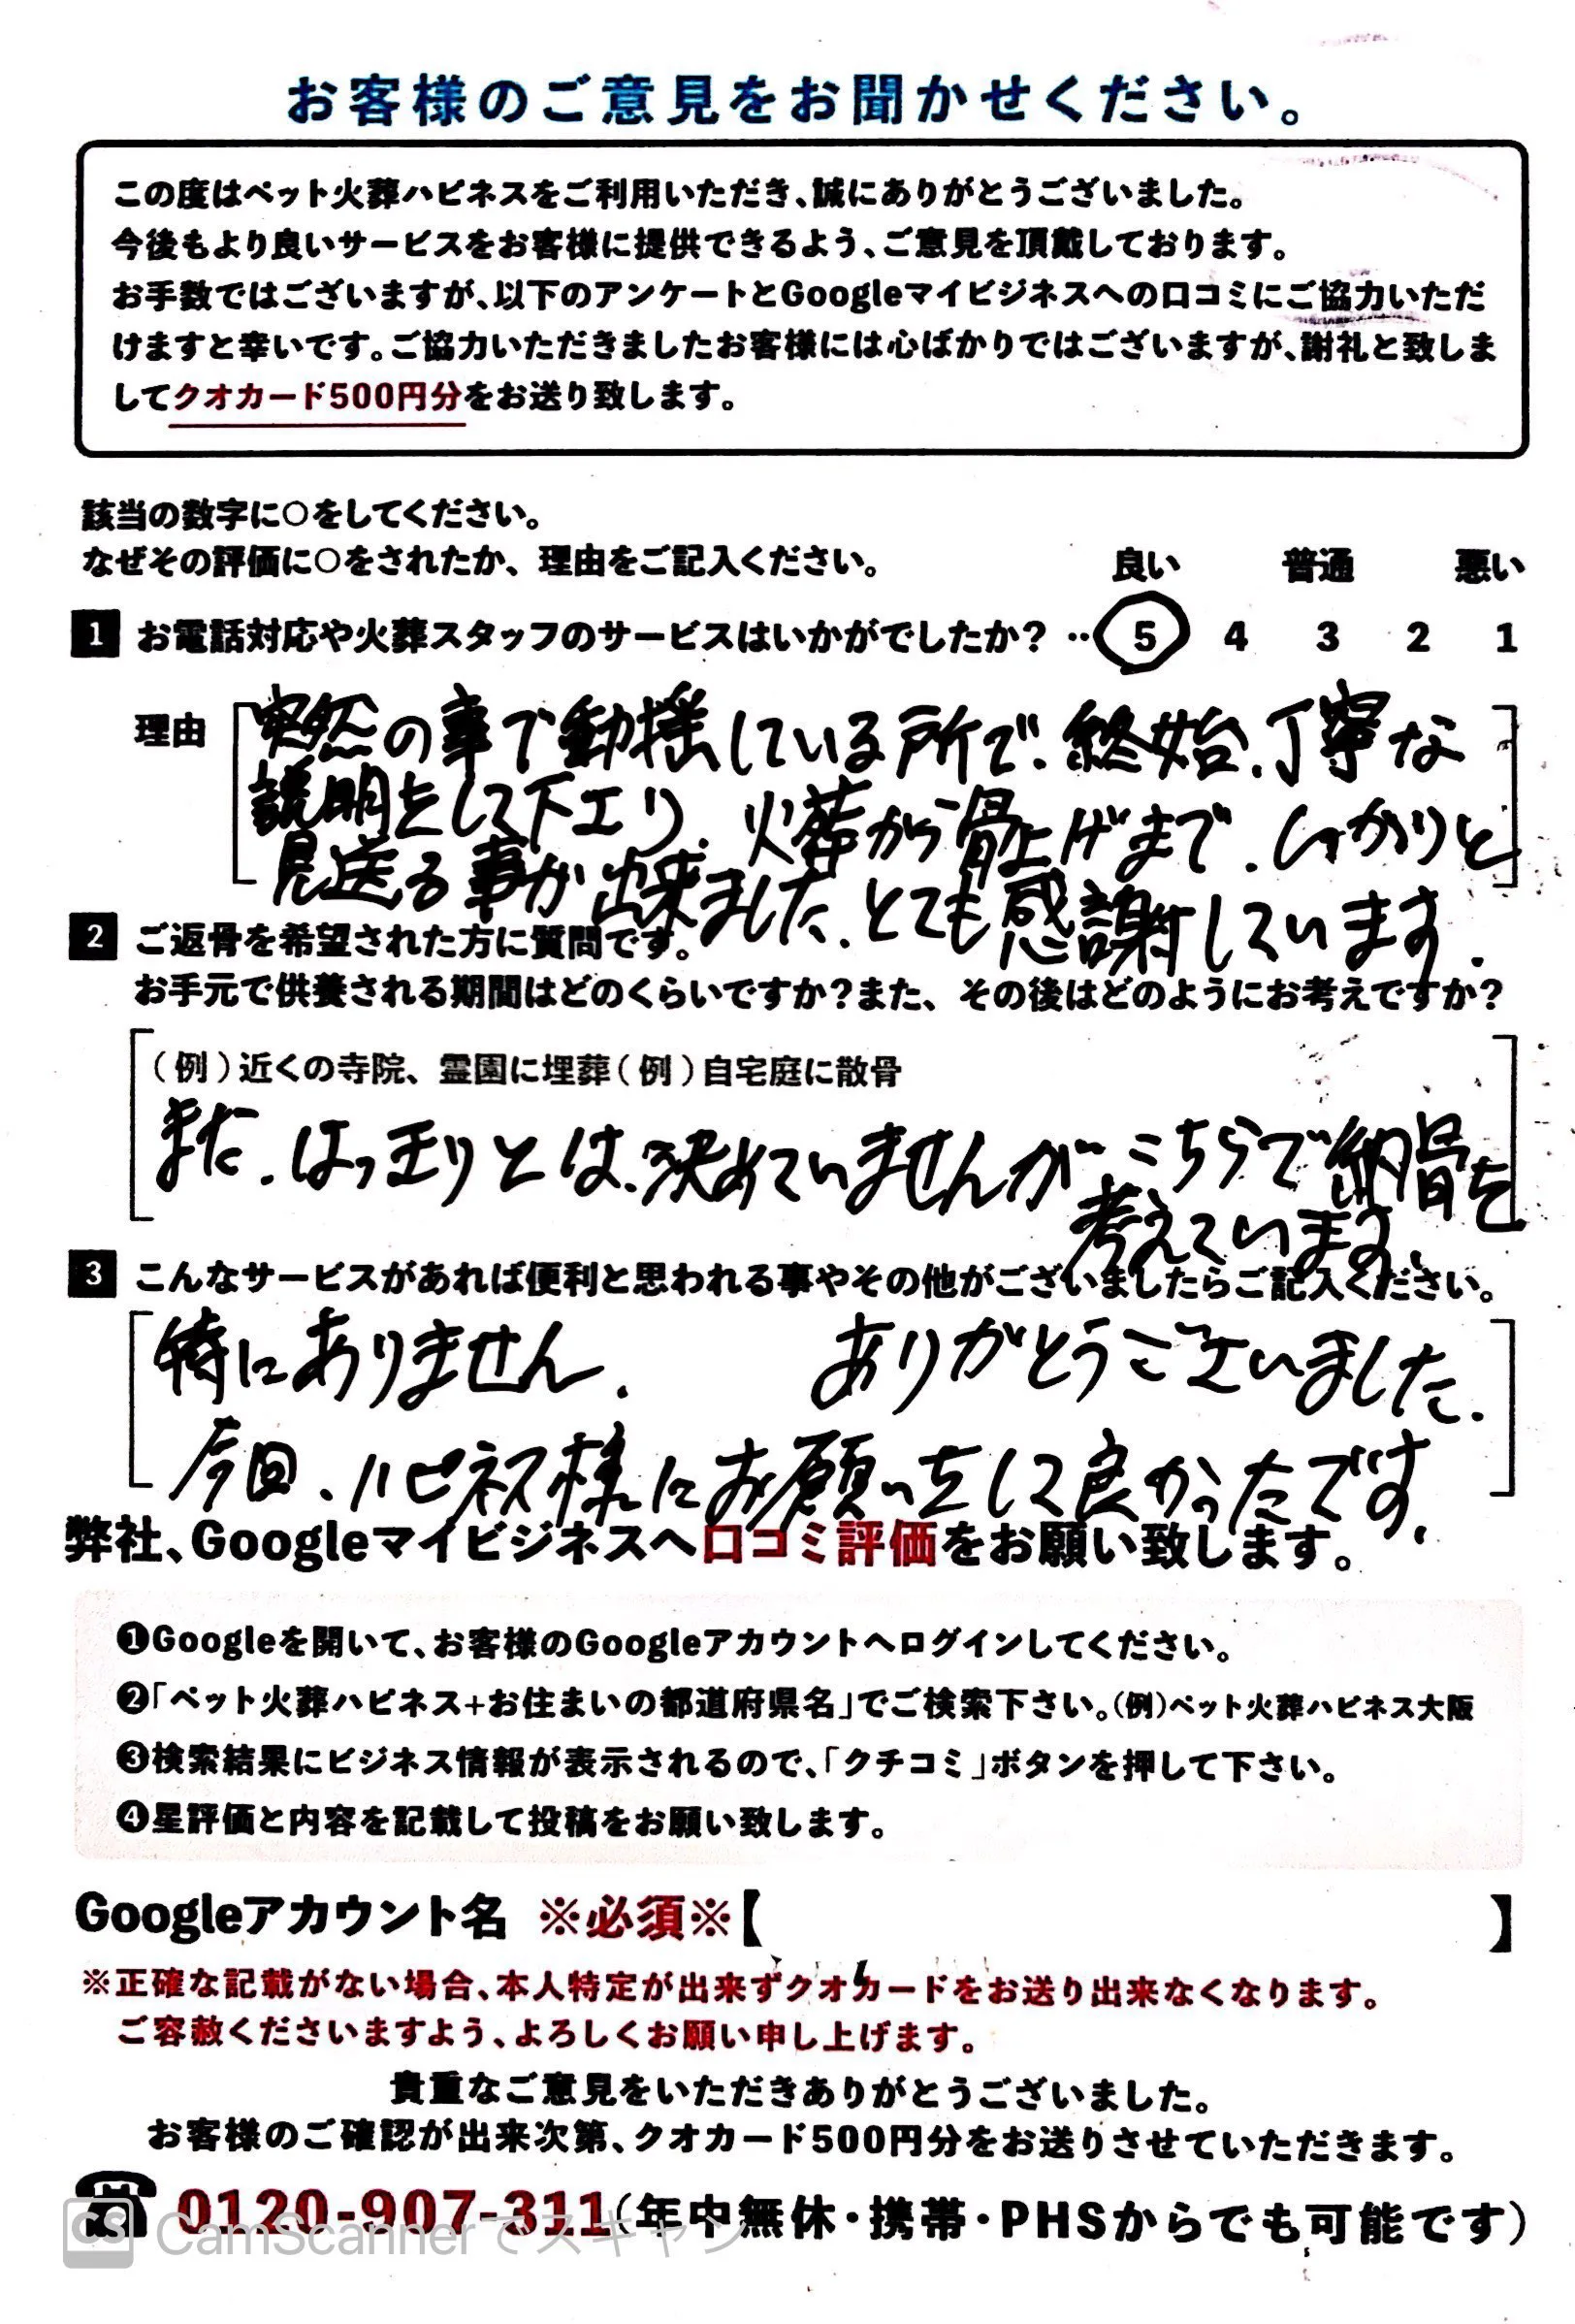 お客様のご意見をお聞かせください。
この度はペット火葬ハピネスをご利用いただき、誠にありがとうございました。
今後もより良いサービスをお客様に提供できるよう、ご意見を頂戴しております。
お手数ではございますが、以下のアンケートとGoogleマイビジネスへの口コミにご協力いただ
けますと幸いです。ご協力いただきましたお客様には心ばかりではございますが、謝礼と致しま
してクオカード500円分をお送り致します。
該当の数字に○をしてください。
なぜその評価に○をされたか、理由をご記入ください。
良い 普通 悪い
1 お電話対応や火葬スタッフのサービスはいかがでしたか? ‥5 4 3 2 1
理由
突然の事で動揺している所で、終始、丁寧な
説明をして下エリ、火葬から骨上げまで、しっかりと
見送る事が出来ました、とても感謝しています.
2 ご返骨を希望された方に質問です。
お手元で供養される期間はどのくらいですか?また、その後はどのようにお考えですか?
(例)近くの寺院、霊園に埋葬(例)自宅庭に散骨
まだ、はっきりとは、決めていませんが、こちらで納骨を
考えています、
3 こんなサービスがあれば便利と思われる事やその他がございましたらご記入ください。
特にありません. ありがとうございました.
今回、ハピネス様にお願いをして良かったです、
弊社、Googleマイビジネスへ口コミ評価をお願い致します。
❶Googleを開いて、お客様のGoogleアカウントへログインしてください。
❷「ペット火葬ハピネス+お住まいの都道府県名」でご検索下さい。(例)ペット火葬ハピネス大阪
❸検索結果にビジネス情報が表示されるので、「クチコミ」ボタンを押して下さい。
❹星評価と内容を記載して投稿をお願い致します。
Googleアカウント名 ※必須※【 】
※正確な記載がない場合、本人特定が出来ずクオカードをお送り出来なくなります。
ご容赦くださいますよう、よろしくお願い申し上げます。
貴重なご意見をいただきありがとうございました。
お客様のご確認が出来次第、クオカード500円分をお送りさせていただきます。
0120-907-311(年中無休・携帯・PHSからでも可能です)
CS CamScannerでスキャン